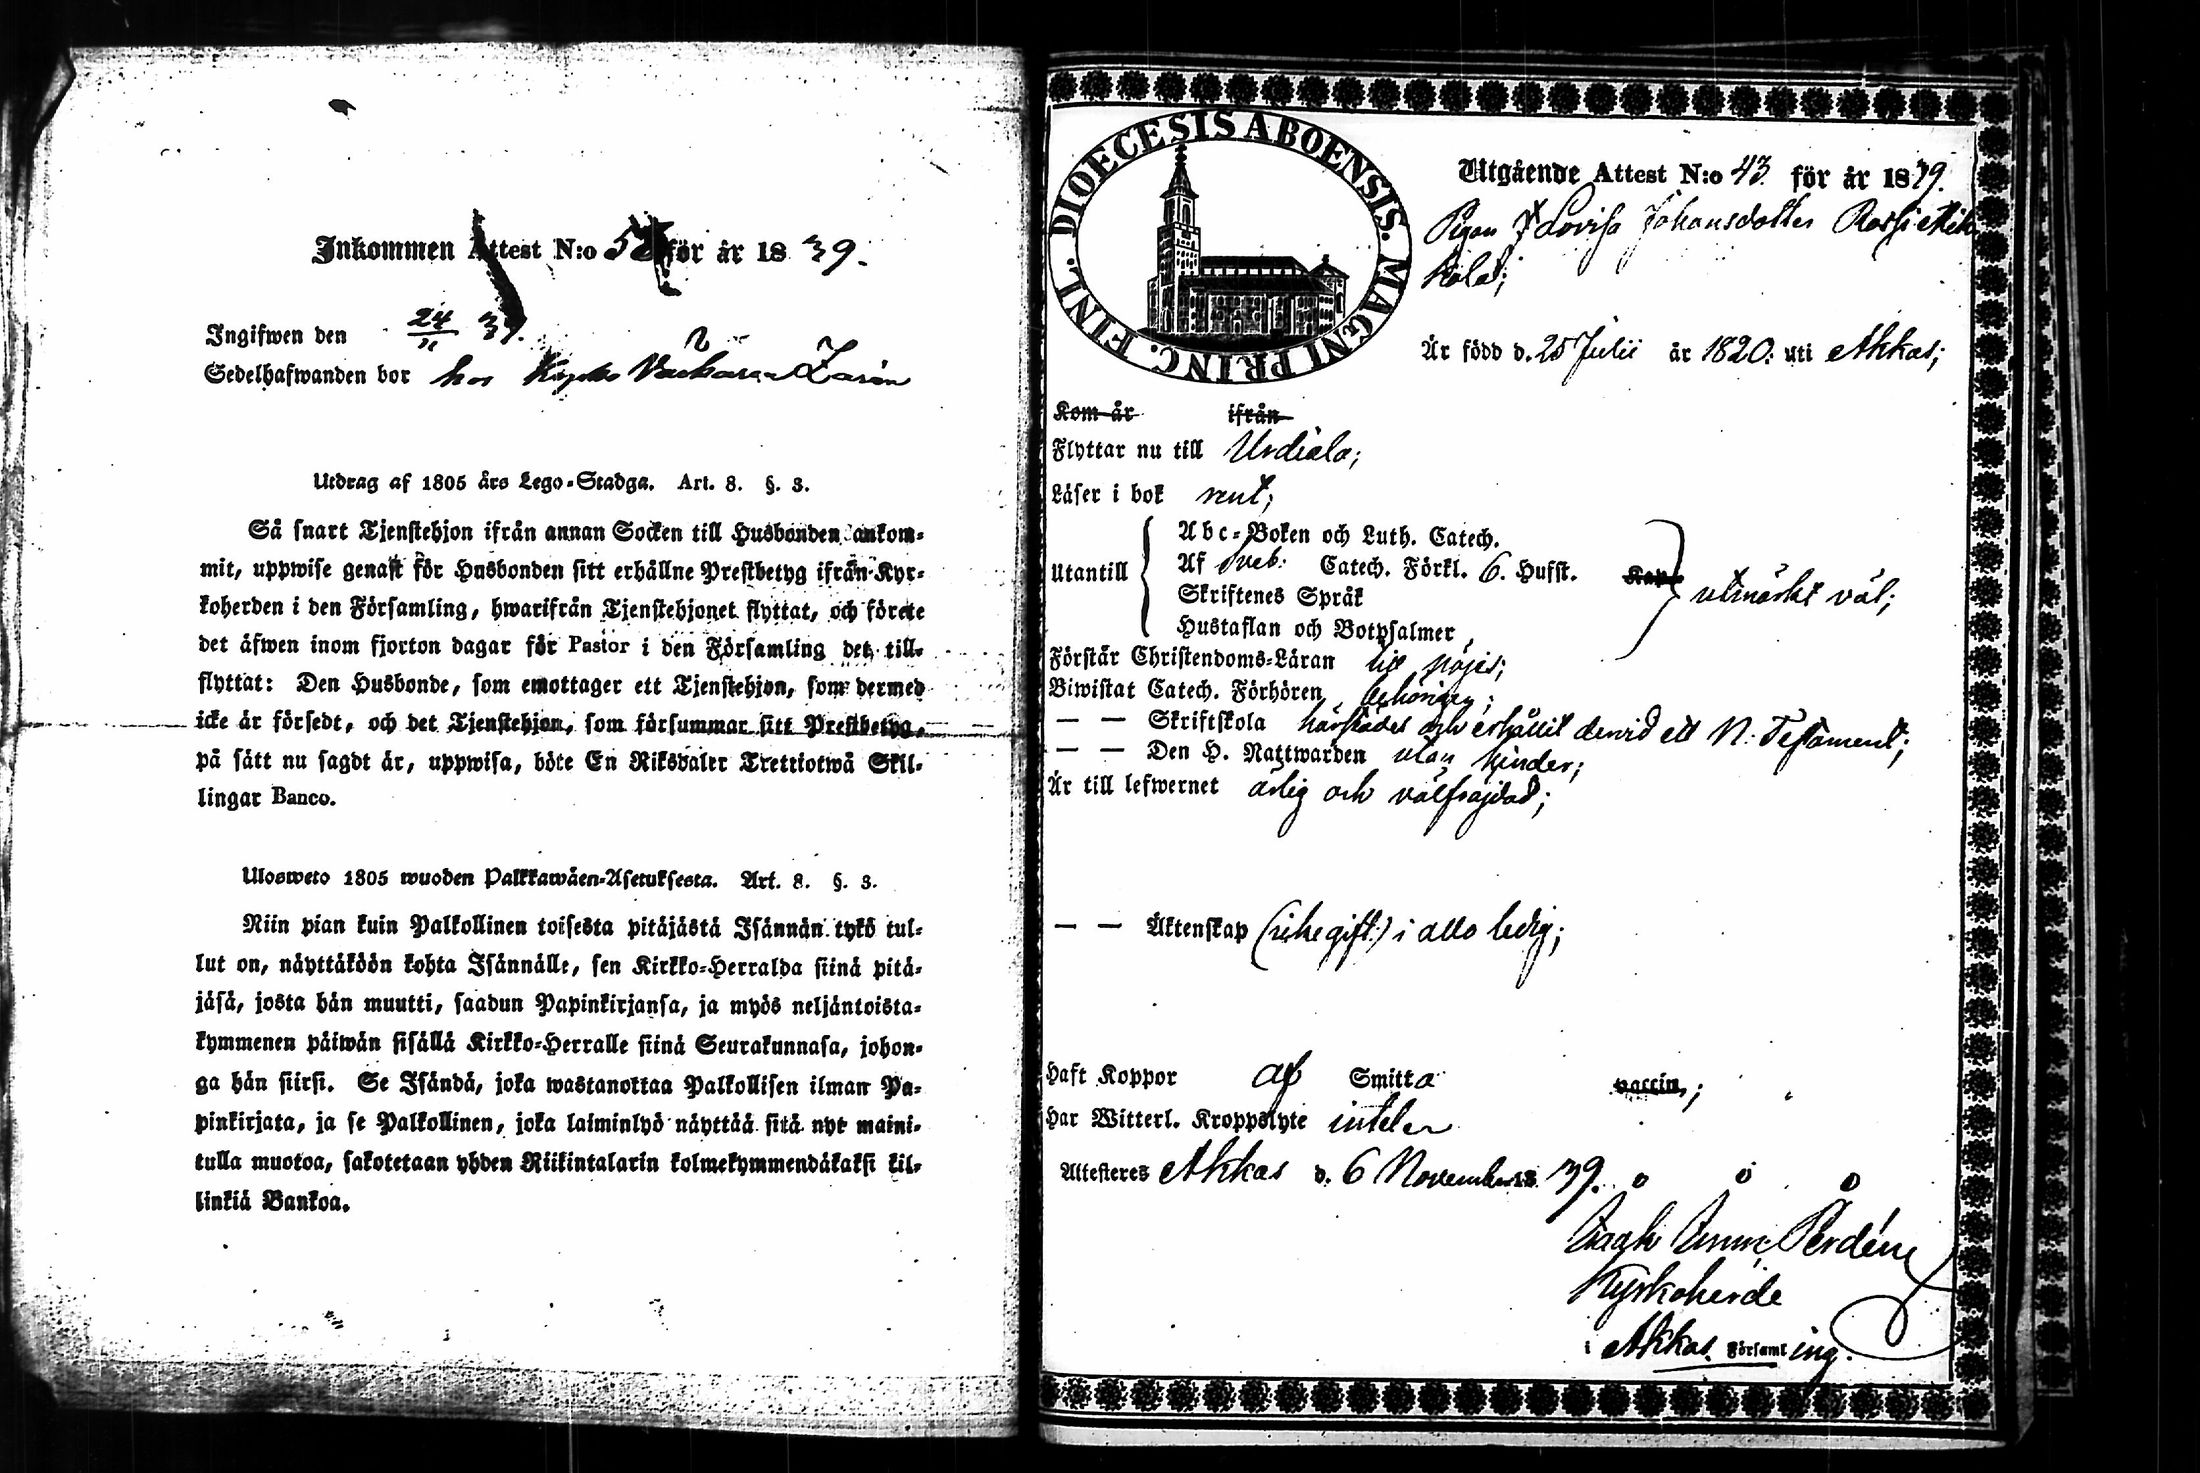 Inkommen Attest N:o för år 1839.
Ingifwen den 24/11 39.
Sedelhafwanden bor hos
Utdrag af 1805 års Lego-Stadga. Art. 8. §. 3.
Så snart Tjenstehjon ifrån annan Socken till Husbonden ankom-
mit, uppwise genast för Husbonden sitt erhållne Prestbetyg ifrån Kyr-
koherden i den Församling, hwarifrån Tjenstehjonet flyttat, och förete
det äfwen inom fjorton dagar för Pastor i den Församling det till-
flyttat: Den Husbonde, som emottager ett Tjenstehjon, som dermed
icke är försedt, och det Tjenstehjon, som försummar sitt Prestbetyg,
på sätt nu sagdt är, uppwisa, böte En Riksdaler Trettiotwå Skil-
lingar Banco.
Ulosweto 1805 wuoden Palkkawäen-Asetuksesta. Art. 8. §. 3.
Niin pian kuin Palkollinen toisesta pitäjästä Isännän tykö tul-
lut on, näyttäköön kohta Isännälle, sen Kirkko-Herralda siinä pitä-
jäsä, josta hän muutti, saadun Papinkirjansa, ja myös neljäntoista-
kymmenen päiwän sisällä Kirkko-Herralle siinä Seurakunnasa, johon-
ga hän siirsi. Se Isändä, joka wastanottaa Palkollisen ilman Pa-
pinkirjata, ja se Palkollinen, joka laiminlyö näyttää sitä nyt maini-
tulla muotoa, sakotetaan yhden Riikintalarin kolmekymmendäkaksi kil-
linkiä Bankoa.
DIOECESIS ABOENSIS. MAGNI PRINC. FINL.
Utgående Attest N:o 43. för år 1839.
Pigan Lovisa Johansdotter
Är född d. 25 Julii år 1820: uti Akkas;
Kom år ifrån
Flyttar nu till Urdiala;
Läser i bok rent;
Abc-Boken och Luth. Catech.
Utantill Af Sveb. Catech. Förkl. 6. Hufst. Kap. utmärkt väl;
Skriftenes Språk
Hustaflan och Botpsalmer
Förstår Christendoms-Läran till nöjes;
Biwistat Catech. Förhören behörigen;
— — Skriftskola härstädes och erhållit dervid ett N. Testament;
— — Den H. Nattwarden utan hinder;
Är till lefwernet ärlig och välfräjdad;
— — Äktenskap (icke gift:) i allo ledig;
Haft Koppor af Smitta vaccin,;
Har Witterl. Kroppslyte
Attesteres Akkas d. 6 November 1839.
Kyrkoherde
i Akkas Församling.